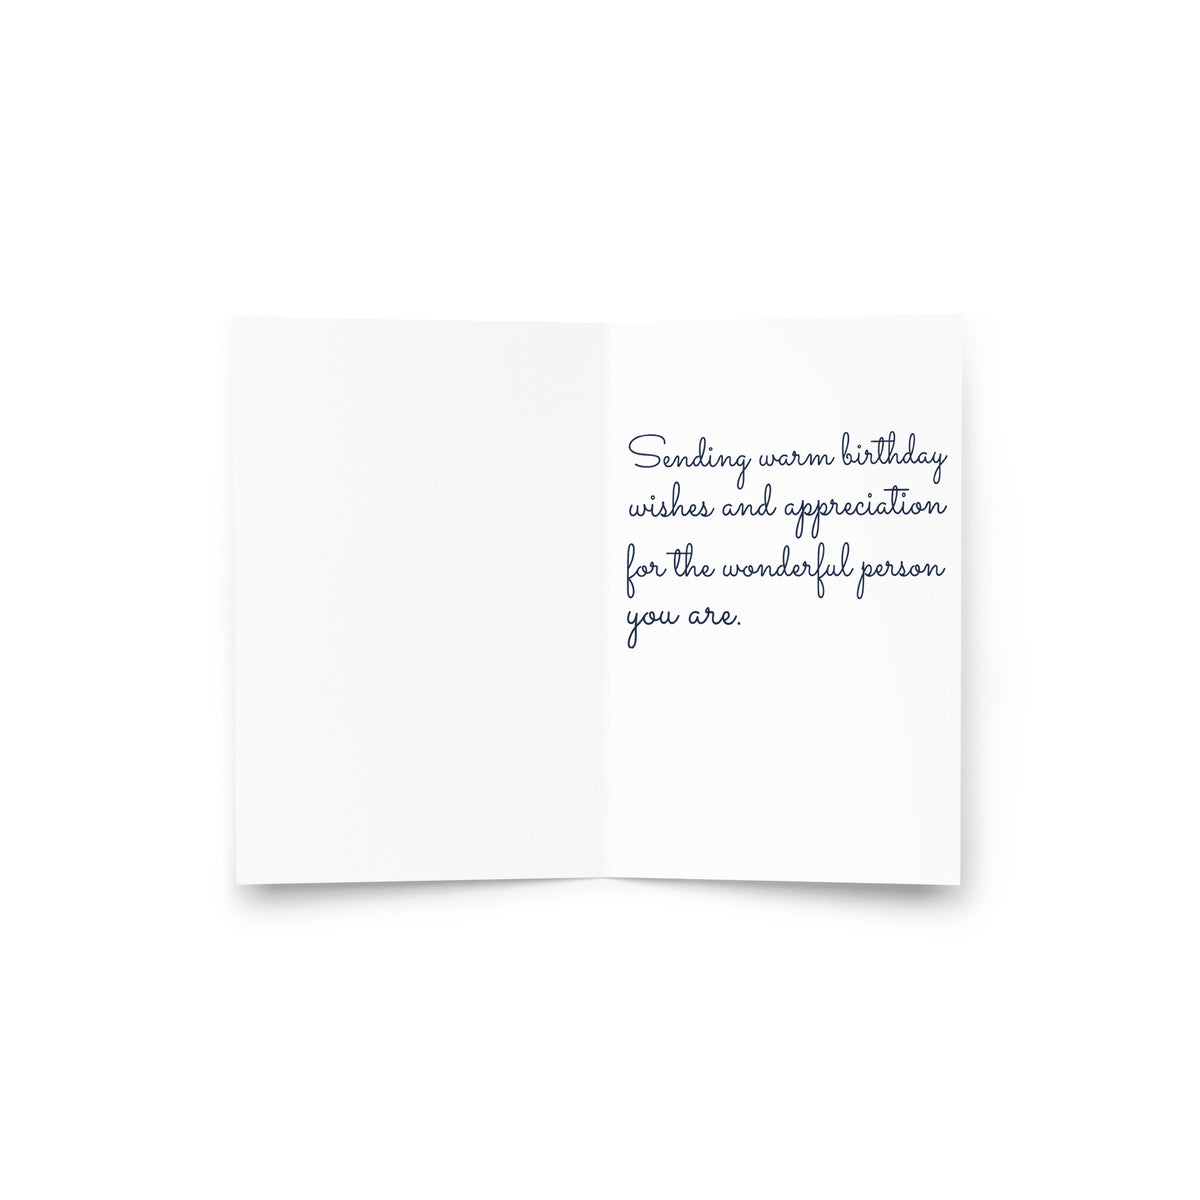 Sending warm birthday
wishes and appreciation
for the wonderful person
you are.